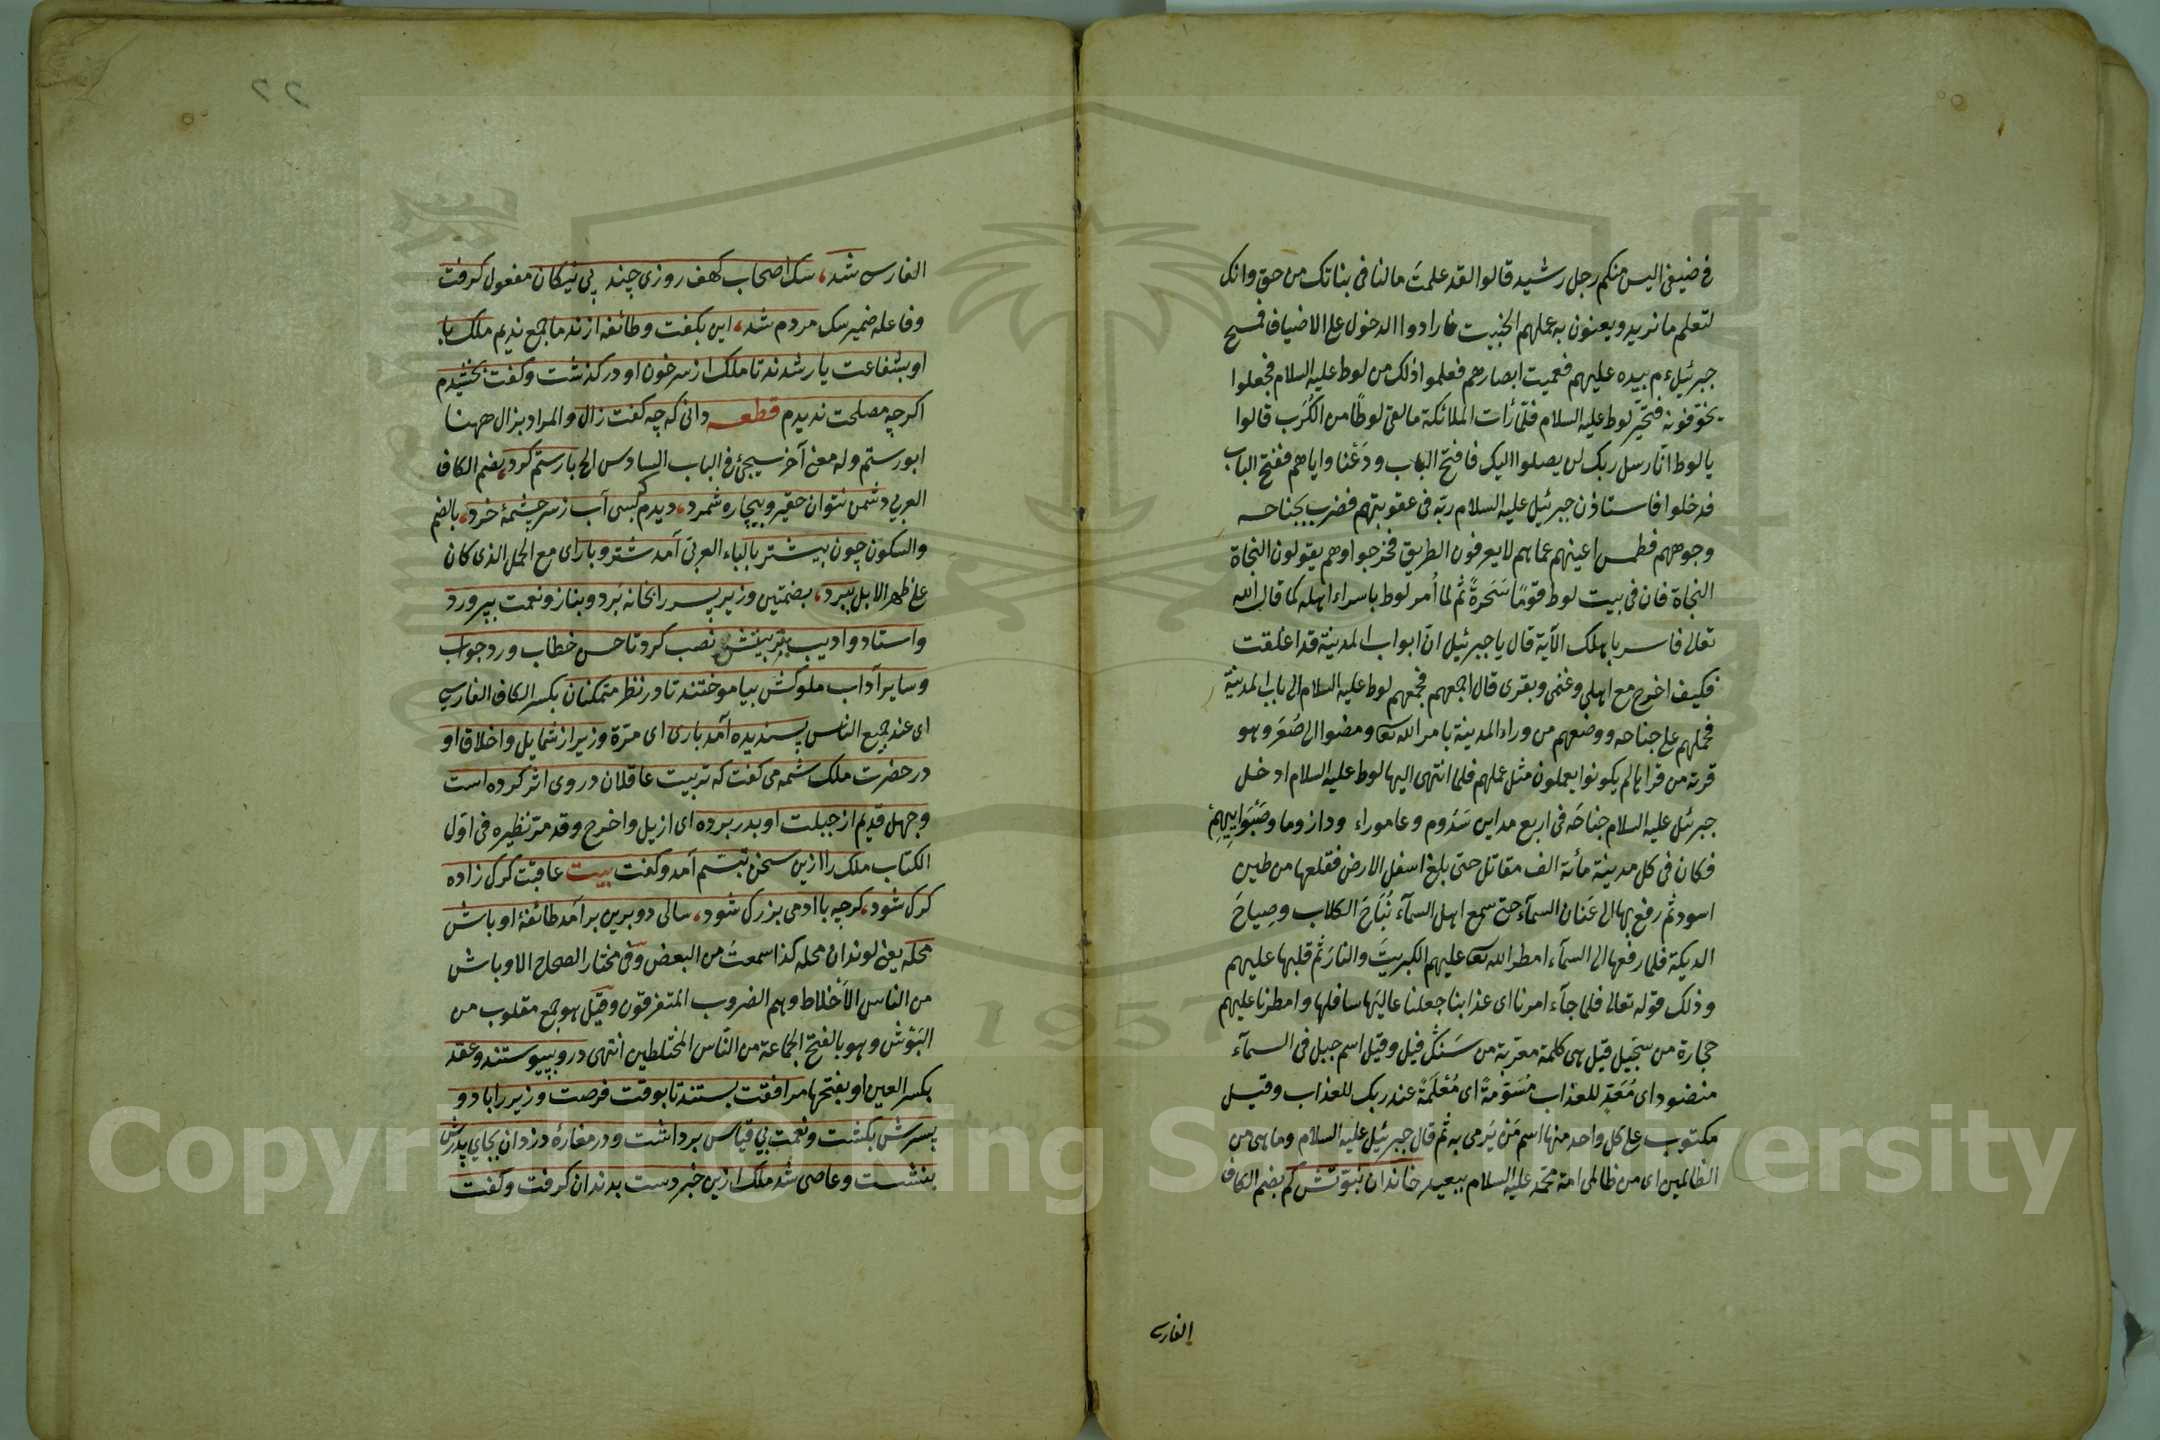 في ضيفي اليس منكم رجل رشيد قالوا لقد علمت ما لنا في بناتك من حق وانك
لتعلم ما نريد ويعنون به عملهم الخبيث فارادوا الدخول على الاضياف فمسح
جبرئيل ءم بيده عليهم فعميت ابصارهم فعلموا ذلك من لوط عليه السلام فجعلوا
يخوفونه فتحيّر لوط عليه السلام فلمّا رأت الملائكة ما لقي لوطًا من الكُرَب قالوا
يا لوط انّا رسل ربك لن يصلوا اليك فافتح الباب ودَعْنا واياهم ففتح الباب
فدخلوا فاستاذن جبرئيل عليه السلام ربّه في عقوبتهم فضرب بجناحه
وجوههم فطمس اعينهم عماهم لا يعرفون الطريق فخرجوا وهم يقولون النجاة
النجاة فان في بيت لوط قومًا سَحَرةً ثم لما أُمر لوط باسراء اهله كما قال الله
تعالى فاسر باهلك الآية قال يا جبرئيل انّ ابواب المدينة قد اغلقت
فكيف اخرج مع اهلي وغنمي وبقري قال اجمعهم فجمعهم لوط عليه السلام الى باب المدينة
فحملهم على جناحه ووضعهم من وراء المدينة بامر الله تعا ومضوا الى صُعَر وهو
قرية من قرايا لم يكونوا يعملون مثل عملهم فلما انتهى اليها لوط عليه السلام ادخل
جبرئل عليه السلام جناحَه في اربع مداين سَدُوم وعاموراء وداذوما وصَبْوَاييِهِمْ
فكان في كل مدينة مأئة الف مقاتل حتى بلغ اسفل الارض فقلعها من طين
اسود ثم رفع بها الى عَنان السمآء حتى سمع اهل السمآء نُبَاحَ الكلاب وصِياحَ
الديكة فلما رفعها الى السمآء امطر الله تعا عليهم الكبريتَ والنارَ ثم قلبها عليهم
وذلك قوله تعالى فلما جآء امرنا اى عذابنا جعلنا عاليَها سافلها وامطرنا عليهم
حجارة من سجّيل قيل هى كلمة معرّبة من سَنكْ قيل وقيل اسم جبل في السمآء
منضود اى مُعَدّ للعذاب مُسَوّمةً اى مُعْلَمةً عند ربك للعذاب وقيل
مكتوب على كل واحد منها اسم مَن يَرمى به ثم قال جبرئيل عليه السلام وما هى من
الظالمين اى من ظالمى امة محمّد عليه السلام ببعيد خاندان نبوّتش كم بضم الكاف
الفارسى
الفارسى شد، سك اصحاب كهف روزى چند پى نيكان مفعول كرفت
وفاعله ضمير سك مردم شد، اين بكفت وطائفه از ندما جمع نديم ملك با
او بشفاعت يار شدند تا ملك از سر خون او در كذشت وكفت بخشيدم
اكرچه مصلحت نديدم قطعه دانى كه چه كفت زال والمراد بزال ههنا
ابو رستم وله معنى آخر سيجئ فى الباب السادس الخ با رستم كرد، بضم الكاف
العربى دشمن نتوان حقير وبيچاره شمرد، ديدم كسى آب ز سر چشمهٔ خرد، بالضم
والسكون چون بيشتر بالباء العربى آمد شتر وبار اى مع الحمل الذى كان
على ظهر الابل ببرد، بضمتين وزير پسر را بخانه برد وبناز ونعمت بپرورد
واستاد واديب بتربيتش نصب كرد تا حسن خطاب ورد جواب
وساير آداب ملوكش بياموختند تا در نظر متمكنان بكسر الكاف الفارسى
اى عند جميع الناس پسنديده آمد بارى اى مرّة وزير از شمايل واخلاق او
در حضرت ملك شمه مى كفت كه تربيت عاقلان در وى اثر كرده است
وجهل قديم از جبلت او بدر برده اى ازيل واخرج وقد مرّ نظيره فى اوّل
الكتاب ملك را ازين سخن تبسّم آمد وكفت بيت عاقبت كرك زاده
كرك شود، كرچه با ادمى بزرك شود، سالى دو برين برآمد طائفهٔ اوباش
محله يعنى لوندان محله كذا سمعتَ من البعض وفى مختار الصحاح الاوباش
من الناس الاَخلاط وهم الضروب المتفرقون وقيل هو جمع مقلوب من
البَوْش وهو بالفتح الجماعة من النّاس المختلطين انتهى در و پيوستند وعقد
بكسر العين او بفتحها مرافقت بستند تا بوقت فرصت وزير را با دو
پسرش بكشت ونعمت بى قياس برداشت ودر مغارهٔ دزدان بجاى پدرش
بنشست وعاصى شد ملك ازين خبر دست بدندان كرفت وكفت
٢٢
Copyright © King Saud University
1957